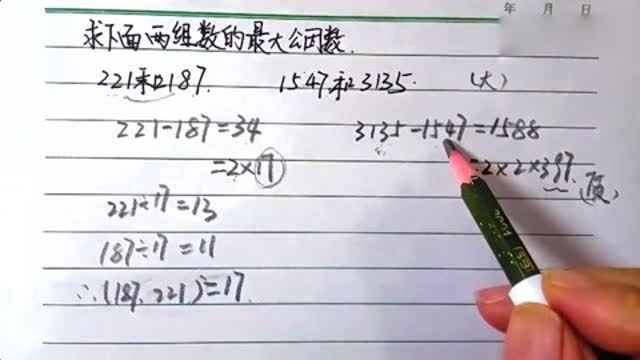 年 月 日
求下面两组数的最大公因数.
221和187. 1547和3135. (大)
221-187=34 3135-1547=1588
=2×17 =2×2×397 (质)
221÷17=13
187÷17=11
∴(187、221)=17.